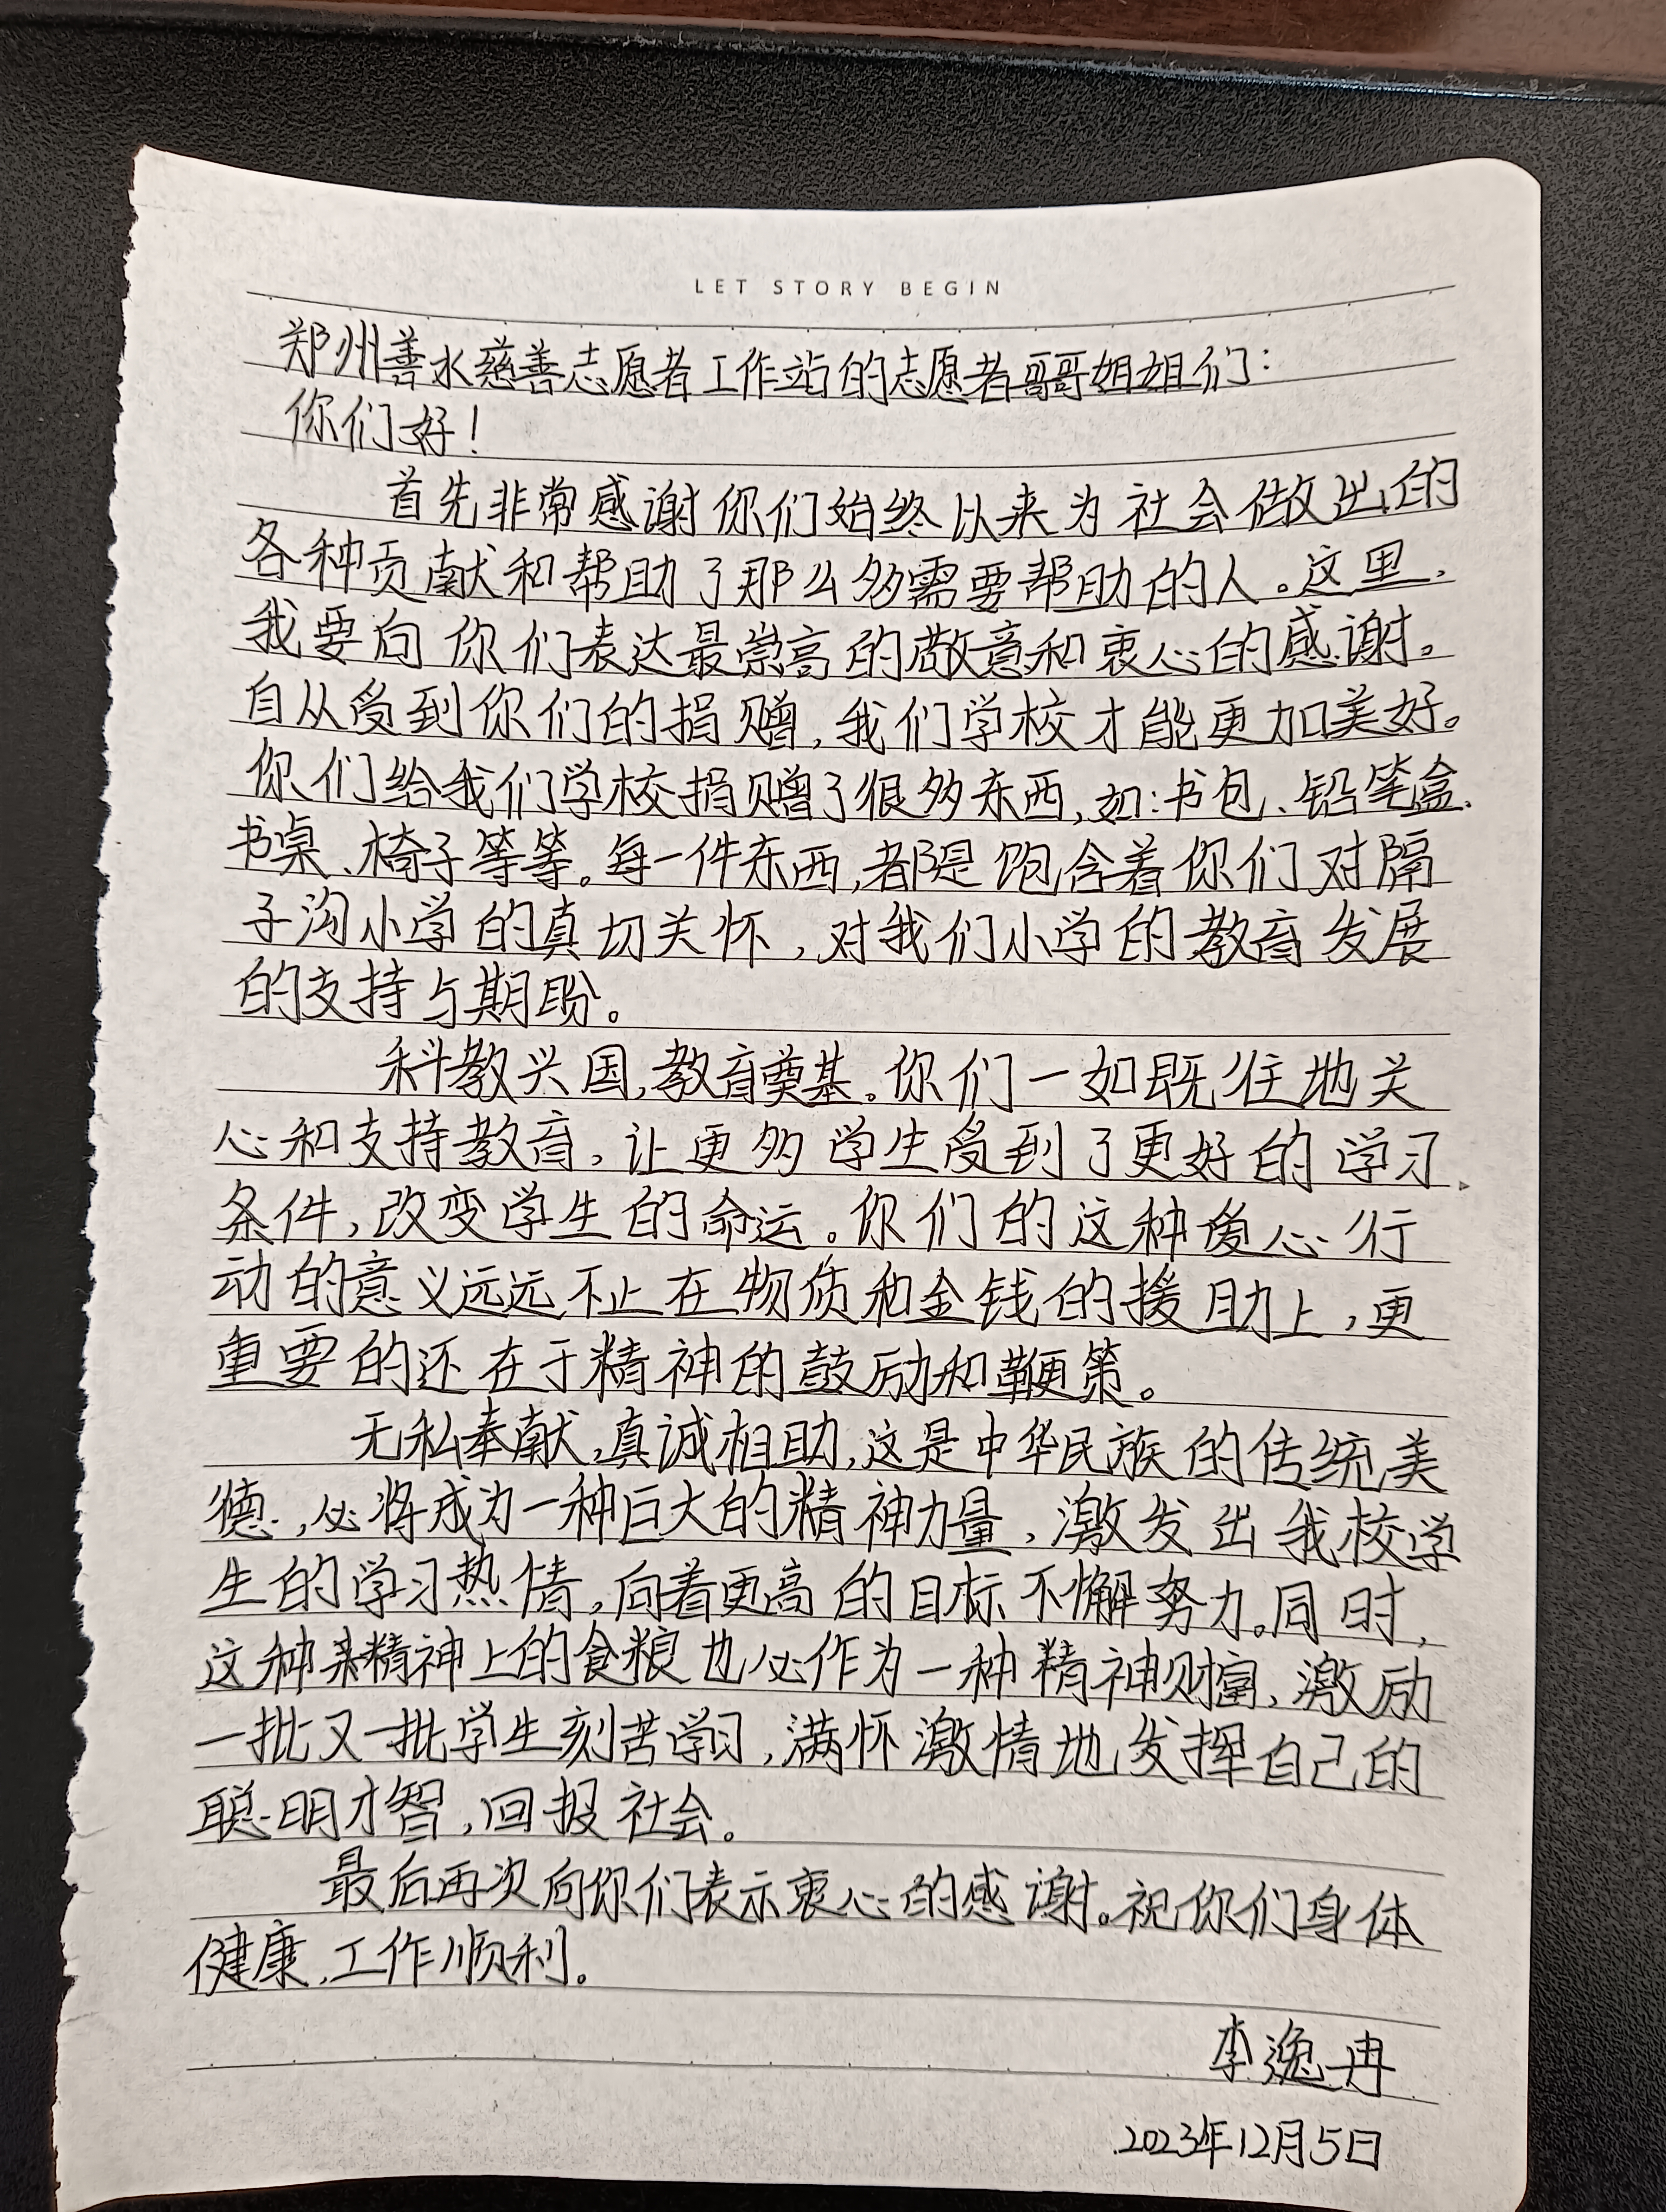 LET STORY BEGIN
郑州善水慈善志愿者工作站的志愿者哥哥姐姐们：
你们好！
首先非常感谢你们始终以来为社会做出的
各种贡献和帮助了那么多需要帮助的人。这里，
我要向你们表达最崇高的敬意和衷心的感谢。
自从受到你们的捐赠，我们学校才能更加美好。
你们给我们学校捐赠了很多东西，如：书包、铅笔盒、
书桌、椅子等等。每一件东西，都是饱含着你们对隔
子沟小学的真切关怀，对我们小学的教育发展
的支持与期盼。
科教兴国，教育奠基。你们一如既往地关
心和支持教育，让更多学生受到了更好的学习
条件，改变学生的命运。你们的这种爱心行
动的意义远远不止在物质和金钱的援助上，更
重要的还在于精神的鼓励和鞭策。
无私奉献，真诚相助，这是中华民族的传统美
德，必将成为一种巨大的精神力量，激发出我校学
生的学习热情，向着更高的目标不懈努力。同时，
这种精神上的食粮也必作为一种精神财富，激励
一批又一批学生刻苦学习，满怀激情地发挥自己的
聪明才智，回报社会。
最后再次向你们表示衷心的感谢。祝你们身体
健康，工作顺利。
李逸冉
2023年12月5日